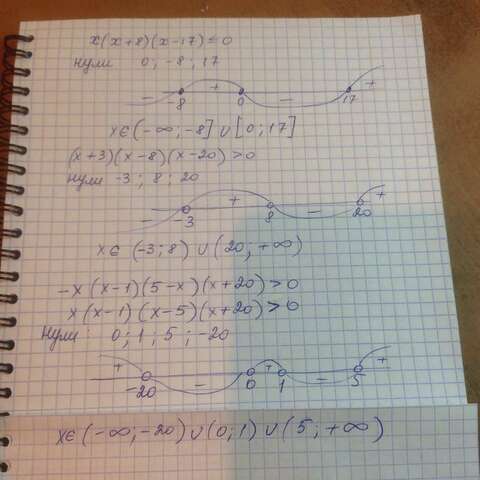 x(x+8)(x-17) ≤ 0
нули 0; -8; 17
- + - +
-8 0 17
x∈(-∞;-8]∪[0;17]
(x+3)(x-8)(x-20)>0
нули -3; 8; 20
- + - +
-3 8 20
x∈ (-3;8) ∪(20;+∞)
-x(x-1)(5-x)(x+20)>0
x(x-1)(x-5)(x+20)>0
Нули: 0; 1; 5; -20
+ - + - +
-20 0 1 5
x∈(-∞;-20)∪(0;1)∪(5;+∞)